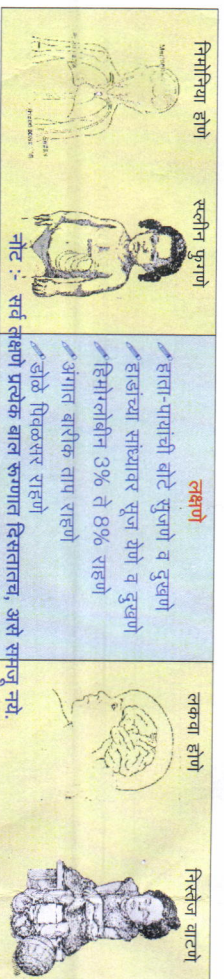 निमोनिया होणे
स्प्लीन फुगणे
लक्षणे
हाता-पायांची बोटे सुजणे व दुखणे
हाडांच्या सांध्यावर सूज येणे व दुखणे
हिमोग्लोबीन 3% ते 8% राहणे
अंगात बारीक ताप राहणे
डोळे पिवळसर राहणे
लकवा होणे
निस्तेज वाटणे
नोट :- सर्व लक्षणे प्रत्येक बाल रूग्णात दिसतातच, असे समजू नये.